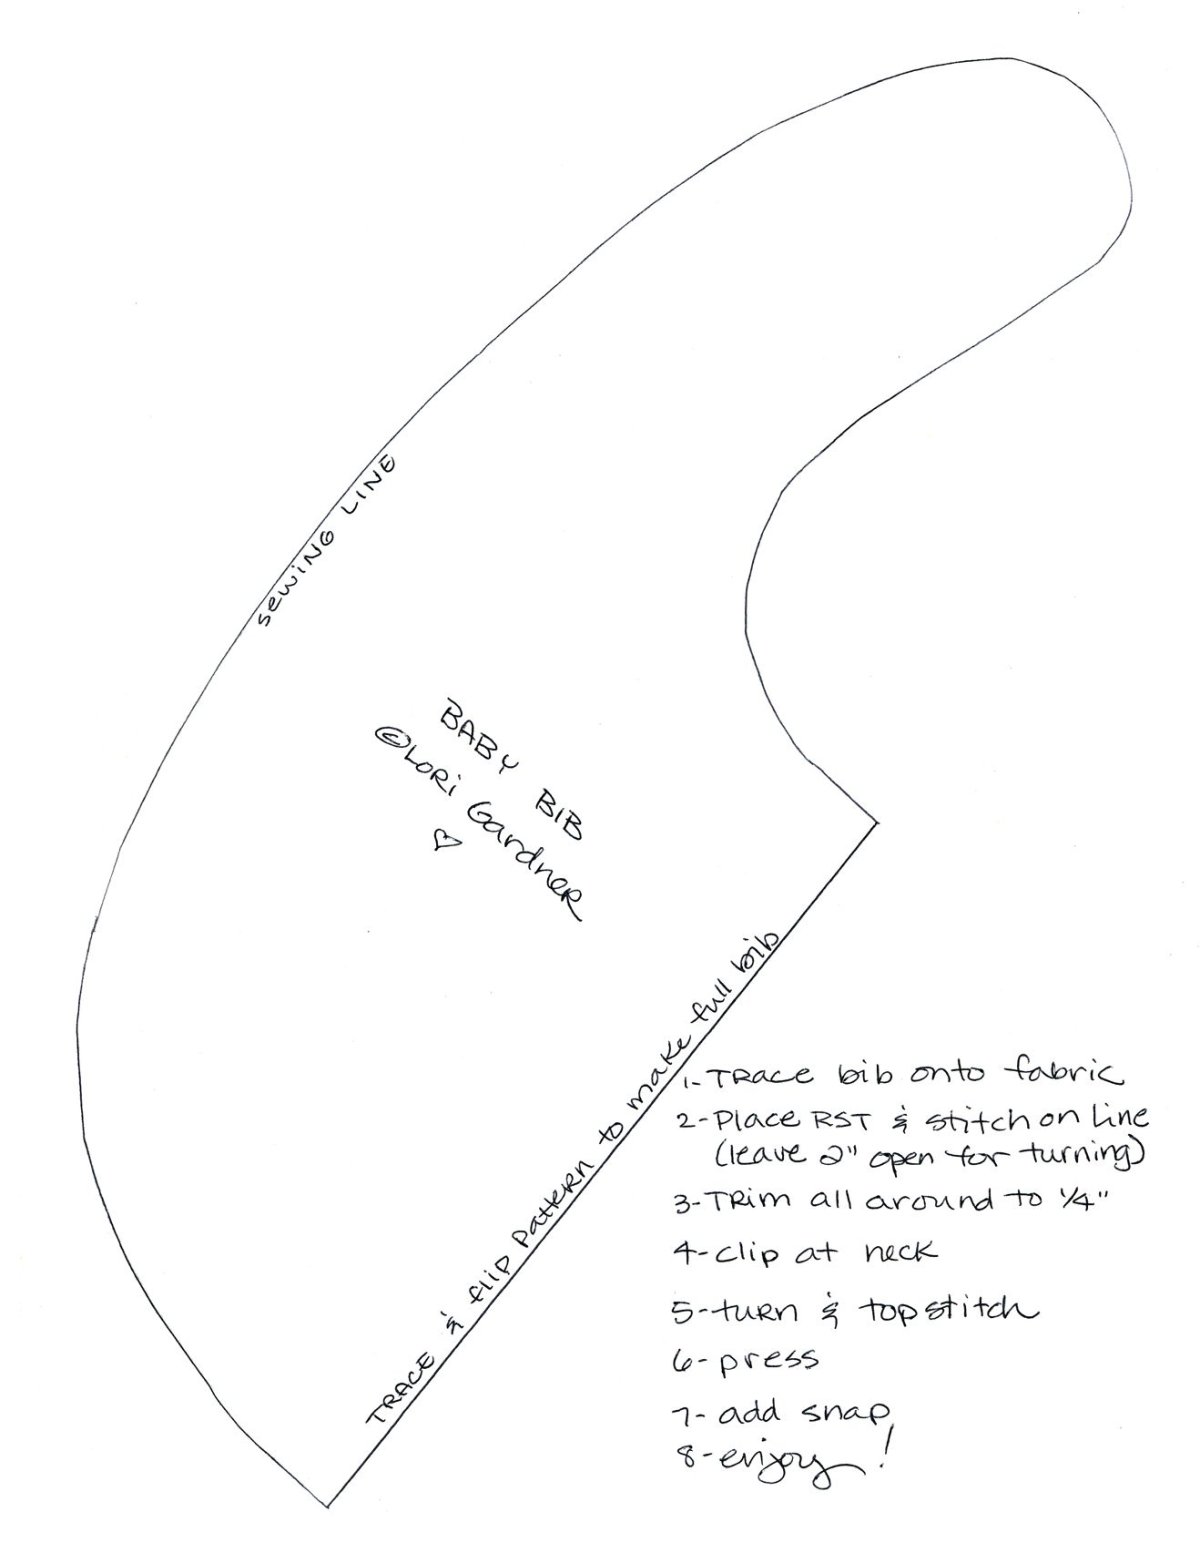 sewing LINE
BABY BIB
©LORi GardneR
TRACE & flip pattern to make full bib
1-TRace bib onto fabric
2-Place RST & stitch on line
(leave 2" open for turning)
3-TRim all around to 1/4"
4-clip at neck
5-turn & topstitch
6-press
7-add snap
8-enjoy!